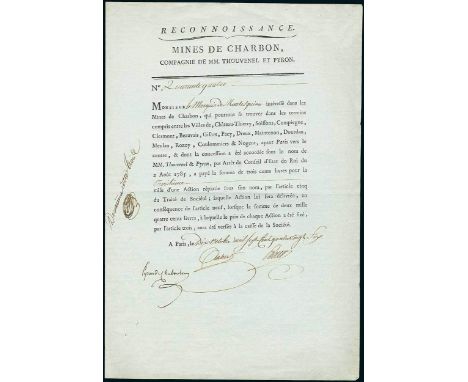 RECONNOISSANCE.
MINES DE CHARBON,
COMPAGNIE DE MM. THOUVENEL ET PYRON.
N°. quarante quatre
MONSIEUR le Marquis de intéressé dans les
Mines de Charbon, qui pourront se trouver dans les terreins
compris entre les Villes de, Château-Thierry, Soissons, Compiegne,
Clermont, Beauvais, Gisors, Pacy, Dreux, Maintenon, Dourdan,
Meulan, Rozoy, Coulommiers & Nogent, ayant Paris vers le
centre, & dont la concession a été accordée sous le nom de
MM. Thouvenel & Pyron, par Arrêt du Conseil d'Etat du Roi du
2 Août 1785, a payé la somme de trois cents livres pour la
mille d'une Action répartie sous son nom, par l'article cinq
du Traité de Société; laquelle Action lui sera délivrée, en
conséquence de l'article neuf, lorsque la somme de deux mille
quatre cents livres, à laquelle le prix de chaque Action a été fixé,
par l'article trois, aura été versée à la caisse de la Société.
A Paris, le dix octobre mil sept cent quatre vingt six